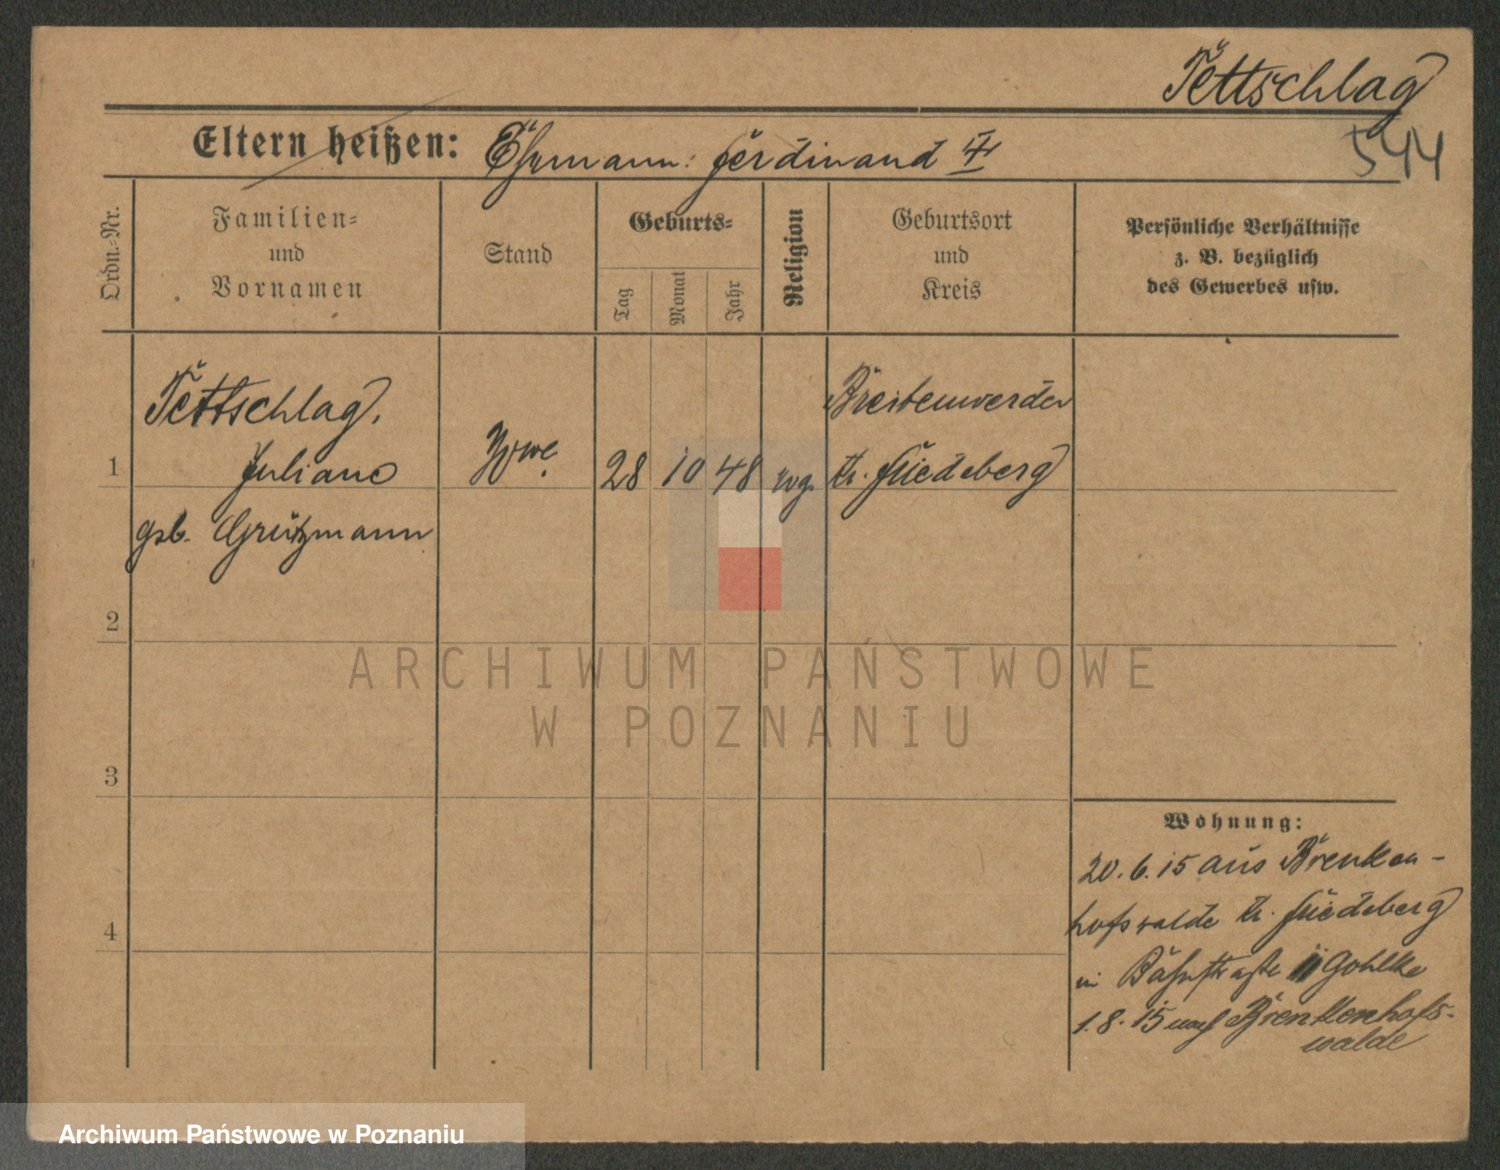 Tettschlag
544
Eltern heißen: Ehemann: Ferdinand
Ordn.-Nr.
Familien-
und
Vornamen
Stand
Geburts-
Tag
Monat
Jahr
Religion
Geburtsort
und
Kreis
Persönliche Verhältnisse
z. B. bezüglich
des Gewerbes usw.
1
Tettschlag,
Juliane
geb. Grützmann
Wwe.
28
10
48
evg.
Breitenwerder
Kr. Friedeberg
2
3
4
Wohnung:
20.6.15 aus Brenken-
hofswalde Kr. Friedeberg
in Bahnstraße Gohlke
1.8.15 nach Brenkenhofs-
walde
ARCHIWUM PAŃSTWOWE
W POZNANIU
Archiwum Państwowe w Poznaniu